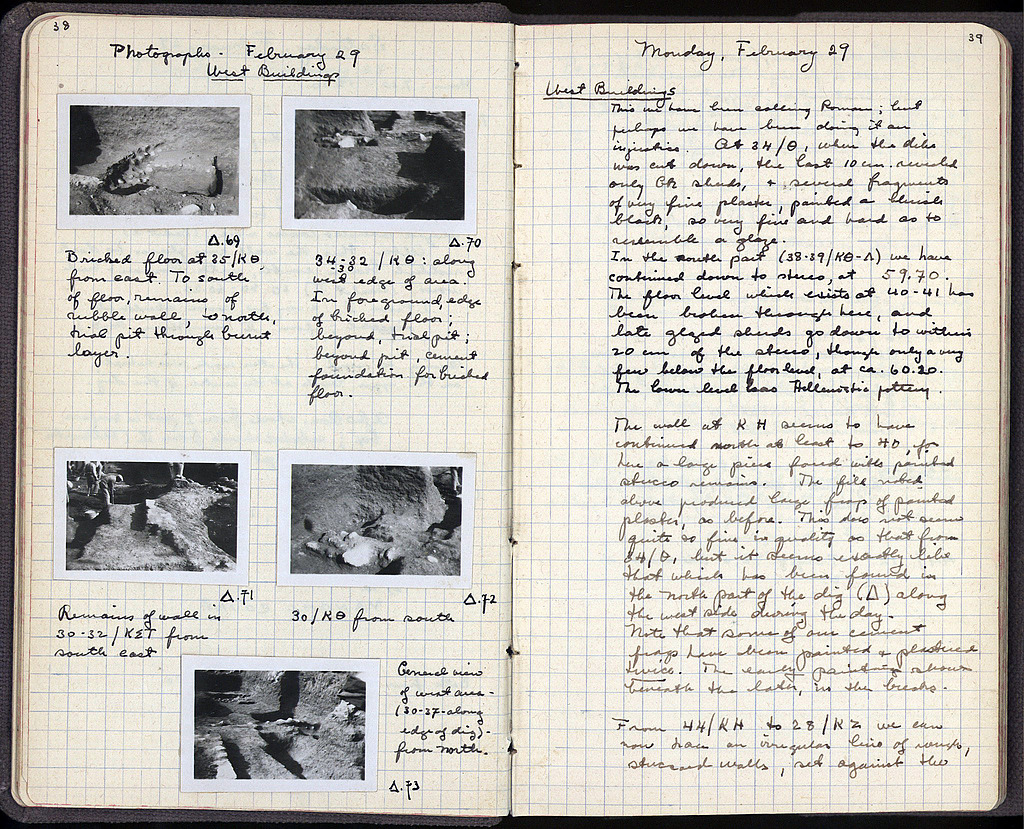 38
Photographs - February 29
West Buildings
Δ.69
Bricked floor at 35/ΚΘ,
from east. To south
of floor, remains of
rubble wall, to north,
trial pit through burnt
layer.
Δ.70
34-32/ΚΘ: along
-30
west edge of area.
In foreground, edge
of bricked floor;
beyond, trial pit;
beyond pit, cement
foundation for bricked
floor.
Δ.71
Remains of wall in
30-32/ΚΣΤ from
south east
Δ.72
30/ΚΘ from south
General view
of west area -
(30-37-along
edge of dig) -
from north.
Δ.73
39
Monday, February 29
West Buildings
This we have been calling Roman; but
perhaps we have been doing it an
injustice. At 34/Θ, when the dike
was cut down, the last 10 cm. revealed
only Gk sherds, + several fragments
of very fine plaster, painted a bluish
black, so very fine and hard as to
resemble a glaze.
In the south part (38-39/ΚΘ-Λ) we have
continued down to stereo, at 59.70.
The floor level which exists at 40-41 has
been broken through here, and
late glazed sherds go down to within
20 cm of the stereo, though only a very
few below the floor level, at ca. 60.20.
The lower level has Hellenistic pottery.
The wall at ΚΗ seems to have
continued north at least to 40, for
here a large piece faced with painted
stucco remains. The fill
above produced large frags of painted
plaster, as before. This does not seem
quite so fine in quality as that from
34/Θ, but it seems exactly like
that which has been found in
the north part of the dig (Δ) along
the west side during the day.
Note that some of our cement
frags have been painted + plastered
twice. The early painting shows
beneath the later, in the breaks.
From 44/ΚΗ to 28/ΚΖ we can
now trace an irregular line of rough,
stuccoed walls, set against the